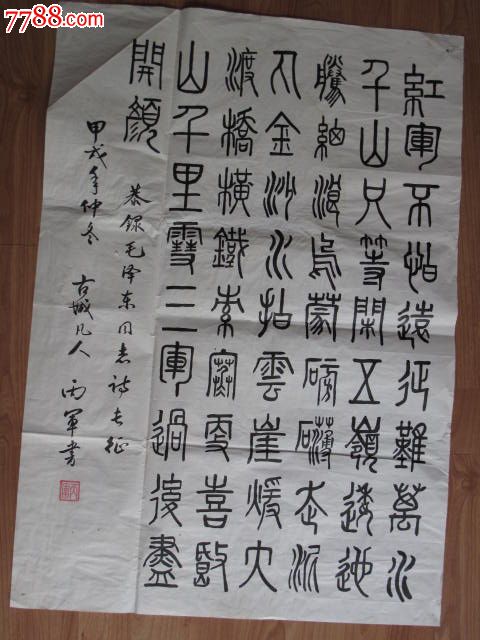 紅軍不怕遠征難萬水
千山只等閑五嶺逶迤
騰細浪烏蒙磅礴走泥
丸金沙水拍雲崖煖大
渡橋橫鐵索寒更喜岷
山千里雪三軍過後盡
開顏
恭録毛泽东同志诗长征
甲戌年仲冬 古城凡人 軍书
7788.com